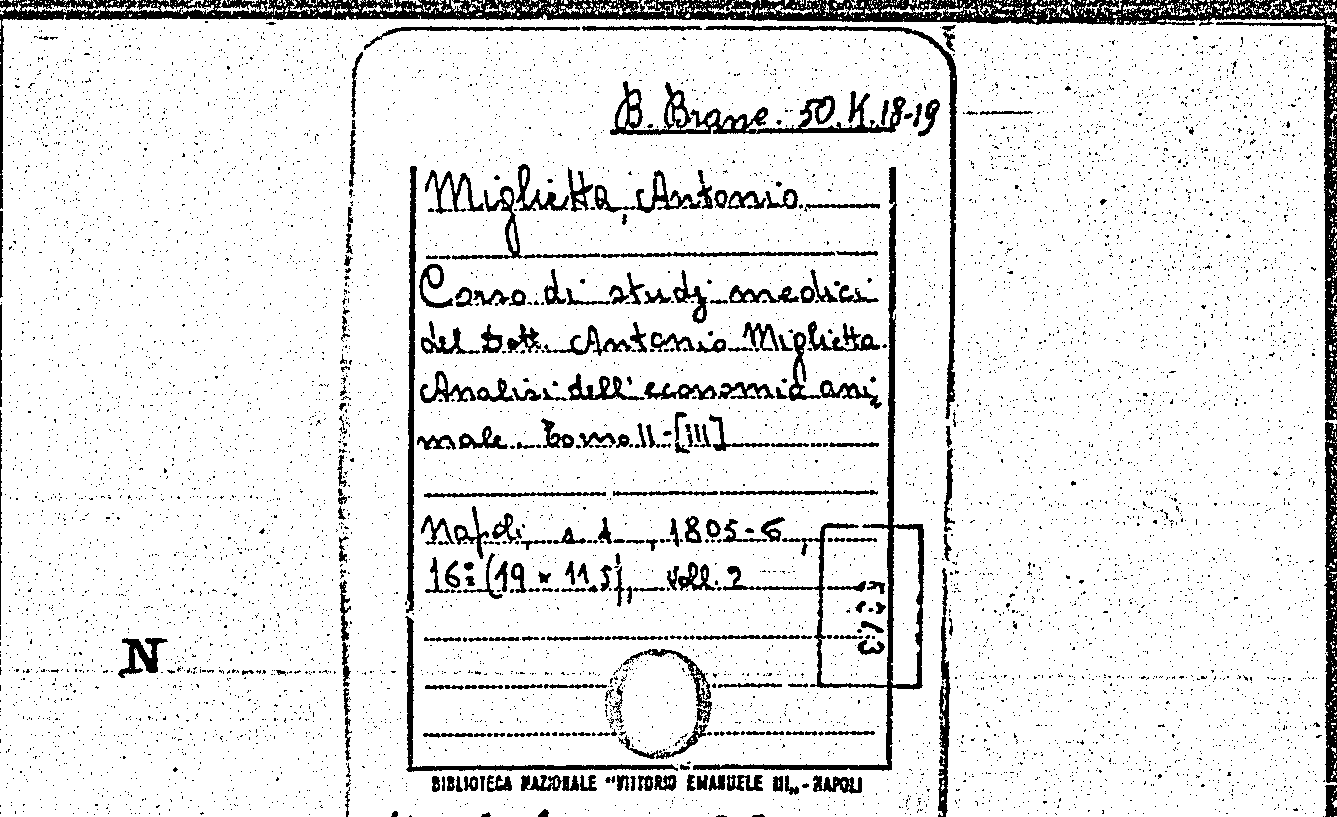 B. Branc. 50.K.18-19
Miglietta, Antonio
Corso di studj medici
del Dott. Antonio Miglietta.
Analisi dell'economia ani=
male. Tomo II-[III]
Napoli, s. d., 1805-6,
16º (19 x 11,5), voll. 2
N
BIBLIOTECA NAZIONALE "VITTORIO EMANUELE III„ - NAPOLI